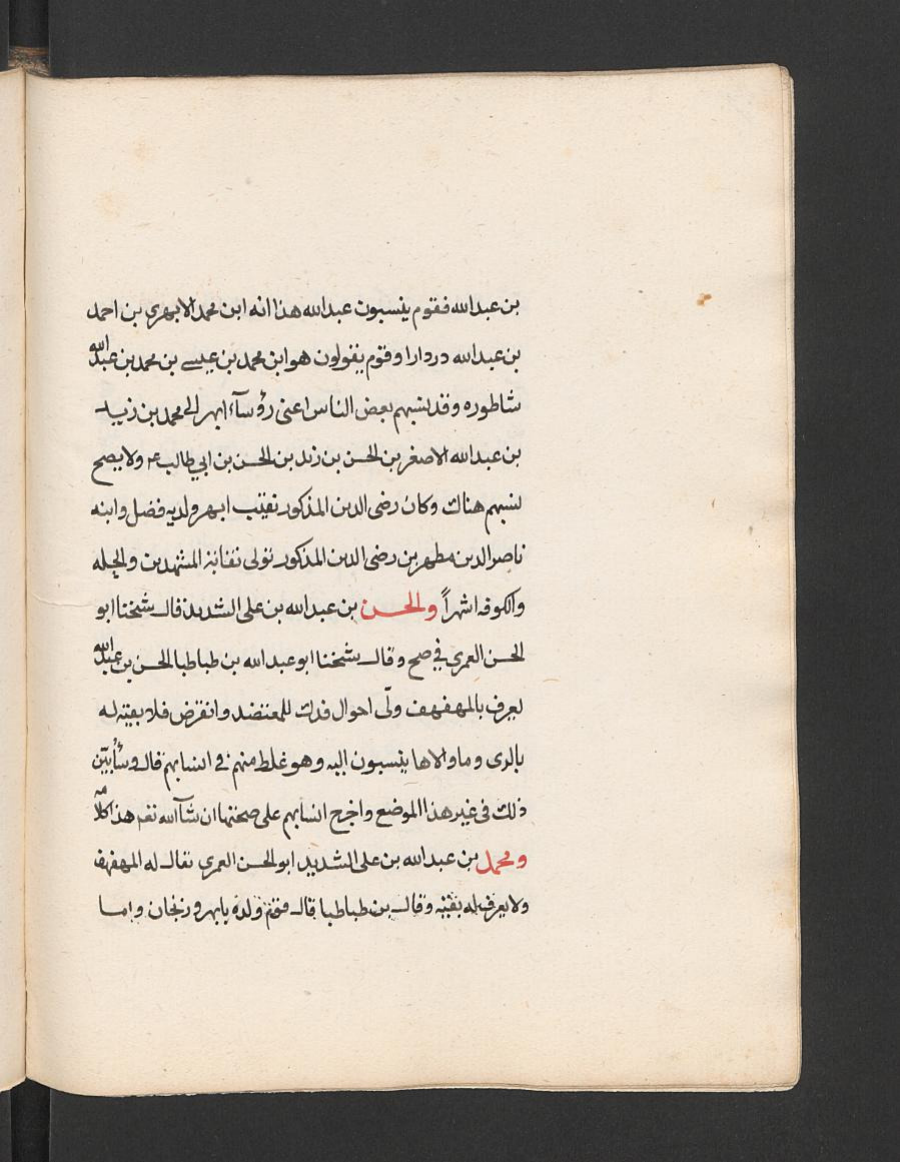 بن عبدالله فقوم ينسبون عبدالله هذا انه ابن محمد الابهري بن احمد
بن عبدالله دردارا وقوم يقولون هو ابن محمد بن عيسى بن محمد بن عبدالله
شاطوره وقد نسبهم بعض الناس اعنى رؤسآء ابهر الى محمد بن زيد
بن عبدالله الاصغر بن الحسن بن زيد بن الحسن بن ابي طالب ع ولا يصح
نسبهم هناك وكان رضى الدين المذكور نقيب ابهر ولديه فضل وابنه
ناصر الدين مطهر بن رضى الدين المذكور تولى نقابة المشهدين والحله
والكوفه اشهراً والحسن بن عبدالله بن على الشديد قال شيخنا ابو
الحسن العمرى في صح وقال شيخنا ابو عبدالله بن طباطبا الحسن بن عبدالله
يعرف بالمهفهف ولّى احوال فدك للمعتضد وانقرض فلا بقيته له
بالرى وما والاها ينتسبون اليه وهو غلط منهم في انسابهم قال وسأبيّن
ذلك في غير هذا الموضع واخرج انسابهم على صحتها ان شآالله نعم هذا كلامه
ومحمد بن عبدالله بن على الشديد ابو الحسن العمرى يقال له المهفهف
ولا يعرف له بقيته وقال بن طباطبا قال فمن ولده بابهر وزنجان واما